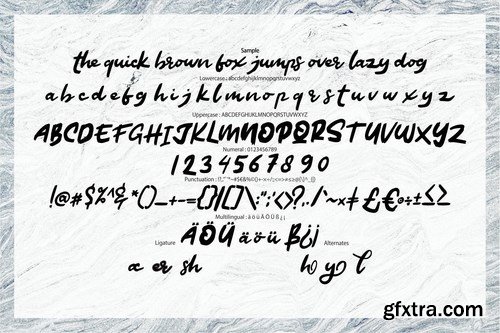 Sample
the quick brown fox jumps over lazy dog
Lowercase : abcdefghijklmnopqrstuvwxyz
a b c d e f g h i j k l m n o p q r s t u v w x y z
Uppercase : ABCDEFGHIJKLMNOPQRSTUVWXYZ
ABCDEFGHIJKLMNOPQRSTUVWXYZ
Numeral : 0123456789
1 2 3 4 5 6 7 8 9 0
Punctuation :
!@#$%^&*()_+-={}|[]\:";'<>?,./`~×≠£€÷±≤≥
Multilingual : ä ö ü Ä Ö Ü ß ¿ ¡
Ligature ÄÖÜ äöü ß¿¡ Alternates
x er sh h yo l
gfxtra.com